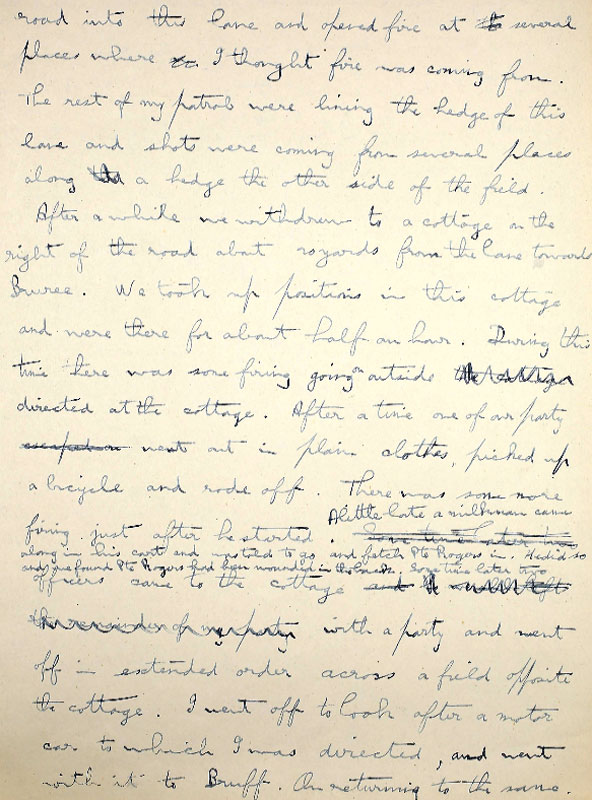 road into this lane and opened fire at several
places where I thought fire was coming from.
The rest of my patrol were lining the hedge of this
lane and shots were coming from several places
along a hedge the other side of the field.
After a while we withdrew to a cottage on the
right of the road about yards from the lane towards
Bruree. We took up positions in this cottage
and were there for about half an hour. During this
time there was some firing going on outside
directed at the cottage. After a time one of our party
went out in plain clothes, picked up
a bicycle and rode off. There was some more
A little late a milkman came
firing just after he started. Some time later two
along in his cart and up told to go and fetch Pte Rogers in. He did so
and we found Pte Rogers had been wounded in the neck. Some time later two
officers came to the cottage and
the remainder of my party with a party and went
off in extended order across a field opposite
the cottage. I went off to look after a motor
car to which I was directed, and went
with it to Bruff. On returning to the same.